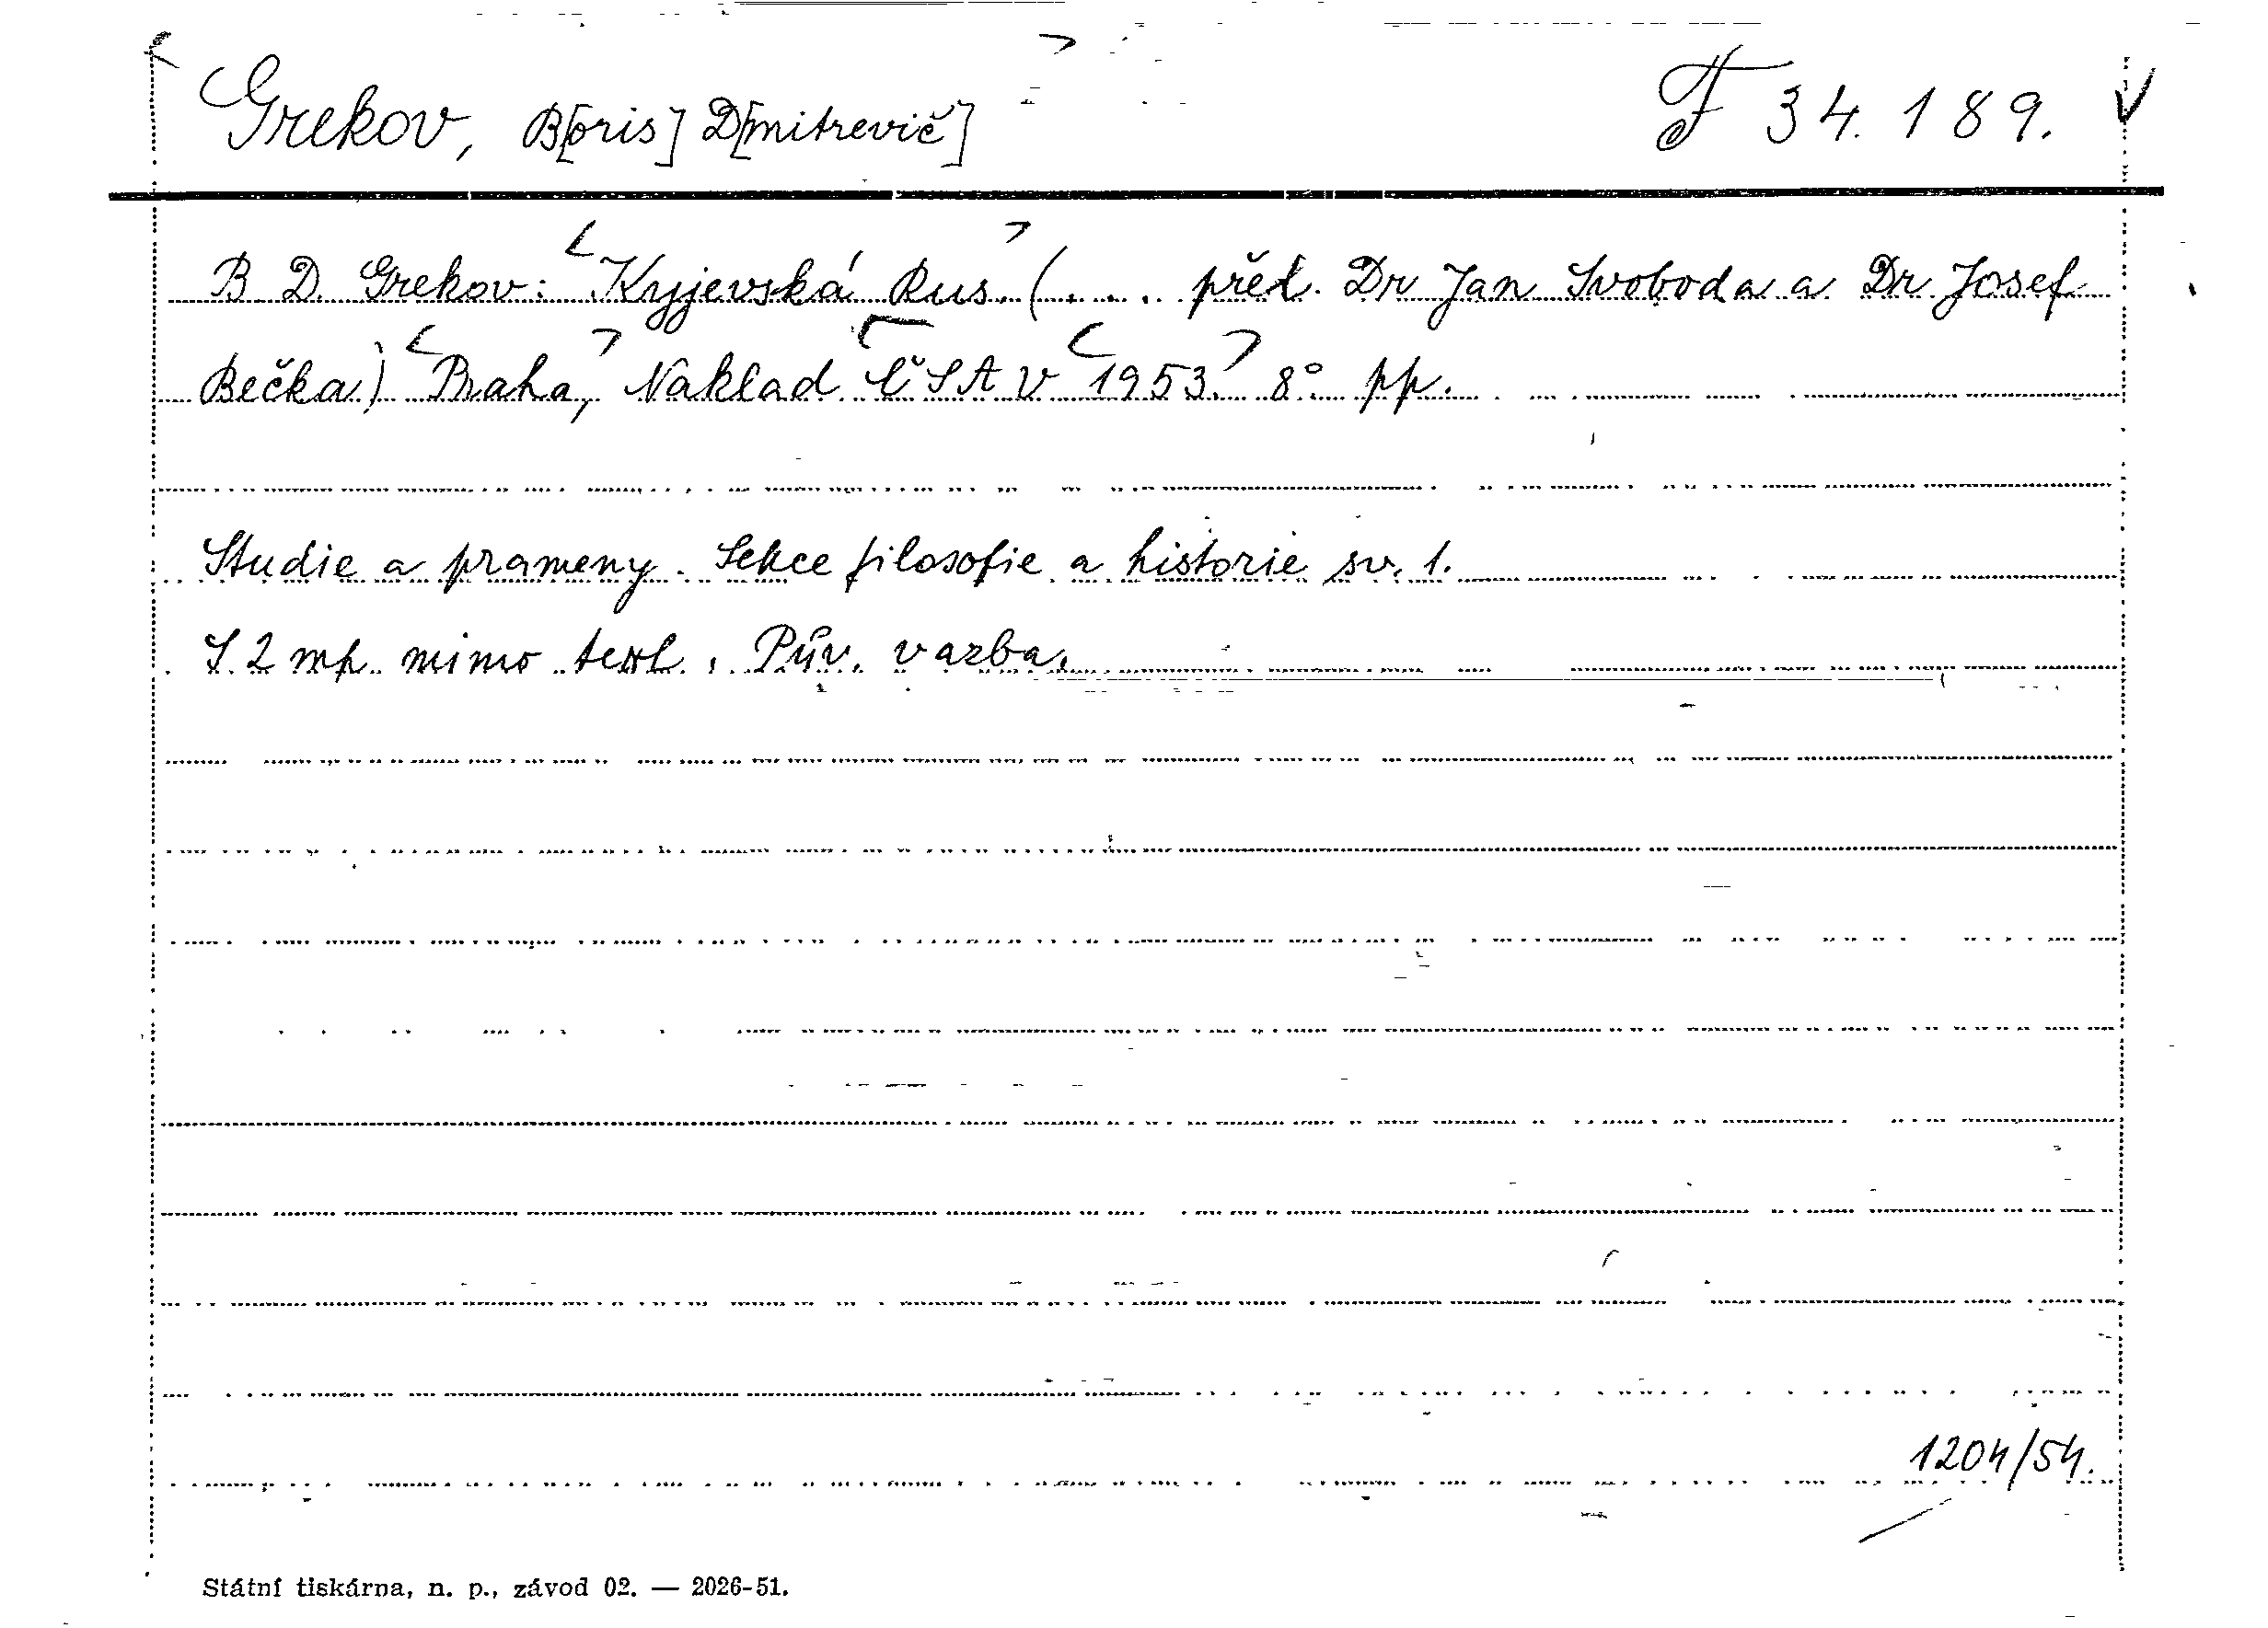 Grekov, B[oris] D[mitrevič] F 34.189.
B D. Grekov: Kyjevská Rus. (.... přel. Dr Jan Svoboda a Dr Josef
Bečka) Praha, Naklad ČSAV 1953. 8° pp.
Studie a prameny. Sekce filosofie a historie sv. 1.
S 2 mp. mimo text. Pův. vazba.
1204/54.
Státní tiskárna, n. p., závod 02. — 2026-51.